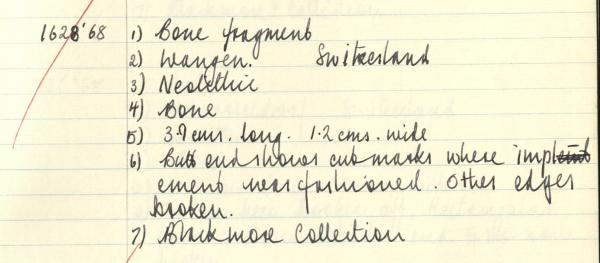 1628'68 1) Bone fragment
2) Wangen. Switzerland
3) Neolithic
4) Bone
5) 3.9 cms. long. 1.2 cms. wide
6) Butt end shows cut marks where impl
ement was fashioned. Other edges
broken.
7) Blackmore Collection